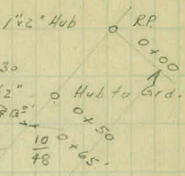 1"x2" Hub
R.P.
0+00
30
2"
Hub to Grd.
0+50
10
48
0+65